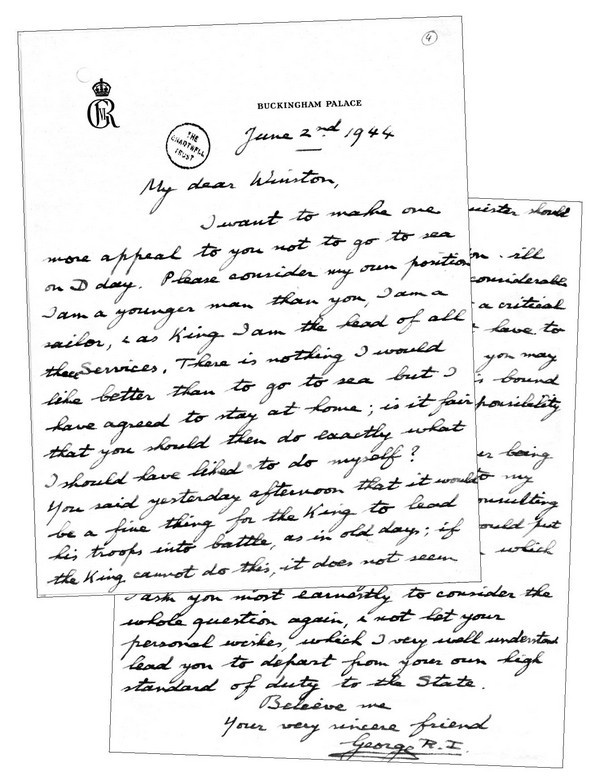 4
GRVI
BUCKINGHAM PALACE
THE
CHARTWELL
TRUST
June 2nd 1944
My dear Winston,
I want to make one
more appeal to you not to go to sea
on D day. Please consider my own position
I am a younger man than you, I am a
sailor, & as King I am the head of all
the Services. There is nothing I would
like better than to go to sea but I
have agreed to stay at home; is it fair
that you should then do exactly what
I should have liked to do myself?
You said yesterday afternoon that it would
be a fine thing for the King to lead
his troops into battle, as in old days; if
the King cannot do this, it does not seem
should
ill
considerable
a critical
have to
you may
bound
being
to my
consulting
put
which
I ask you most earnestly to consider the
whole question again, & not let your
personal wishes, which I very well understand
lead you to depart from your own high
standard of duty to the State.
Believe me
Your very sincere friend
George R.I.